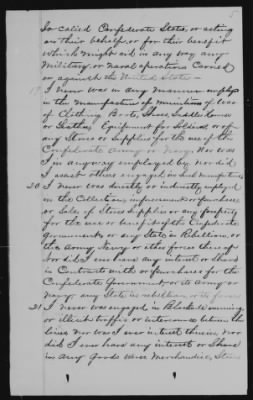 So called Confederate States, or acting
on their behalf, or for their benefit
which might aid in any way any
Military or Naval operations Carried
on against the United States —
19 I never was in any manner employed
in the manufacture of munitions of War
of Clothing Boots, Shoes, Saddles
or Leather, Equipment for Soldiers or of
any Stores or Supplies for the use of the
Confederate Army or Navy. Nor was
I in anyway employed by nor did
I assist others engaged in such manufacture
20 I never was directly or indirectly employed
in the Collection, or purchase
or Sale of Stores Supplies or any property
for the use or benefit of the Confederate
government, or any State in Rebellion, or
the Army Navy or other forces thereof
Nor did I ever have any interest or Share
in Contracts with or purchases for the
Confederate Government, or its Army or
Navy, any State in rebellion, or its forces
21 I never was engaged in Blockade running
or illicit traffic or intercourse between the
lines nor was I ever interest therein, nor
did I ever have any interest or Share
in any Goods Merchandise, Stores